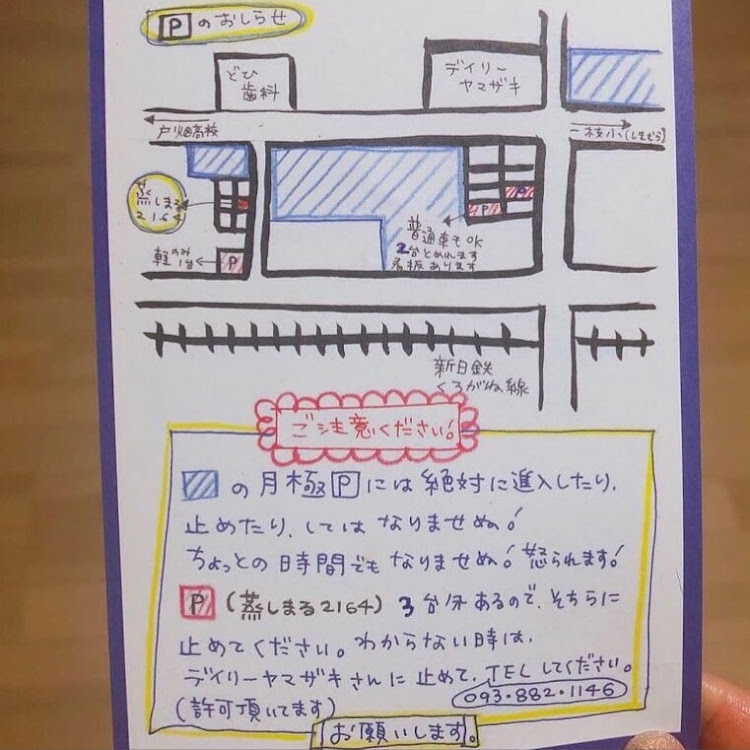 Pのおしらせ
どひ
歯科
デイリー
ヤマザキ
戸畑高校
一枝小(しまむら)
蒸しまる
2164
軽のみ
1台
P
P
P
普通車もOK
2台とめれます
看板あります
新日鉄
くろがね線
ご注意ください!
の月極Pには絶対に進入したり、
止めたり、してはなりませぬ!
ちょっとの時間でもなりませぬ!怒られます!
P(蒸しまる2164)3台分あるので、そちらに
止めてください。わからない時は、
デイリーヤマザキさんに止めて、TELしてください。
(許可頂いてます)
093・882・1146
お願いします。